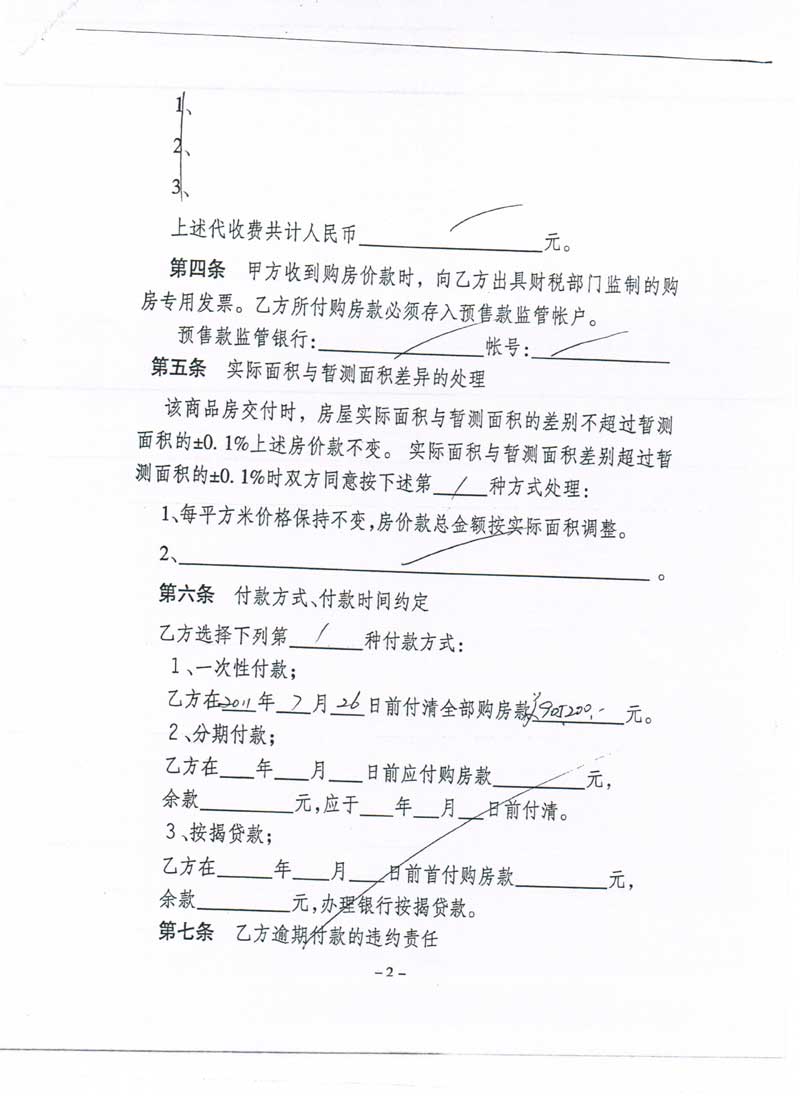 1、
2、
3、
上述代收费共计人民币________元。
第四条 甲方收到购房价款时，向乙方出具财税部门监制的购
房专用发票。乙方所付购房款必须存入预售款监管帐户。
预售款监管银行：________帐号：________
第五条 实际面积与暂测面积差异的处理
该商品房交付时，房屋实际面积与暂测面积的差别不超过暂测
面积的±0.1%上述房价款不变。实际面积与暂测面积差别超过暂
测面积的±0.1%时双方同意按下述第 1 种方式处理：
1、每平方米价格保持不变，房价款总金额按实际面积调整。
2、________。
第六条 付款方式、付款时间约定
乙方选择下列第 1 种付款方式：
1、一次性付款；
乙方在2011年7月26日前付清全部购房款¥905200.-元。
2、分期付款；
乙方在___年___月___日前应付购房款________元，
余款________元，应于___年___月___日前付清。
3、按揭贷款；
乙方在___年___月___日前首付购房款________元，
余款________元，办理银行按揭贷款。
第七条 乙方逾期付款的违约责任
-2-